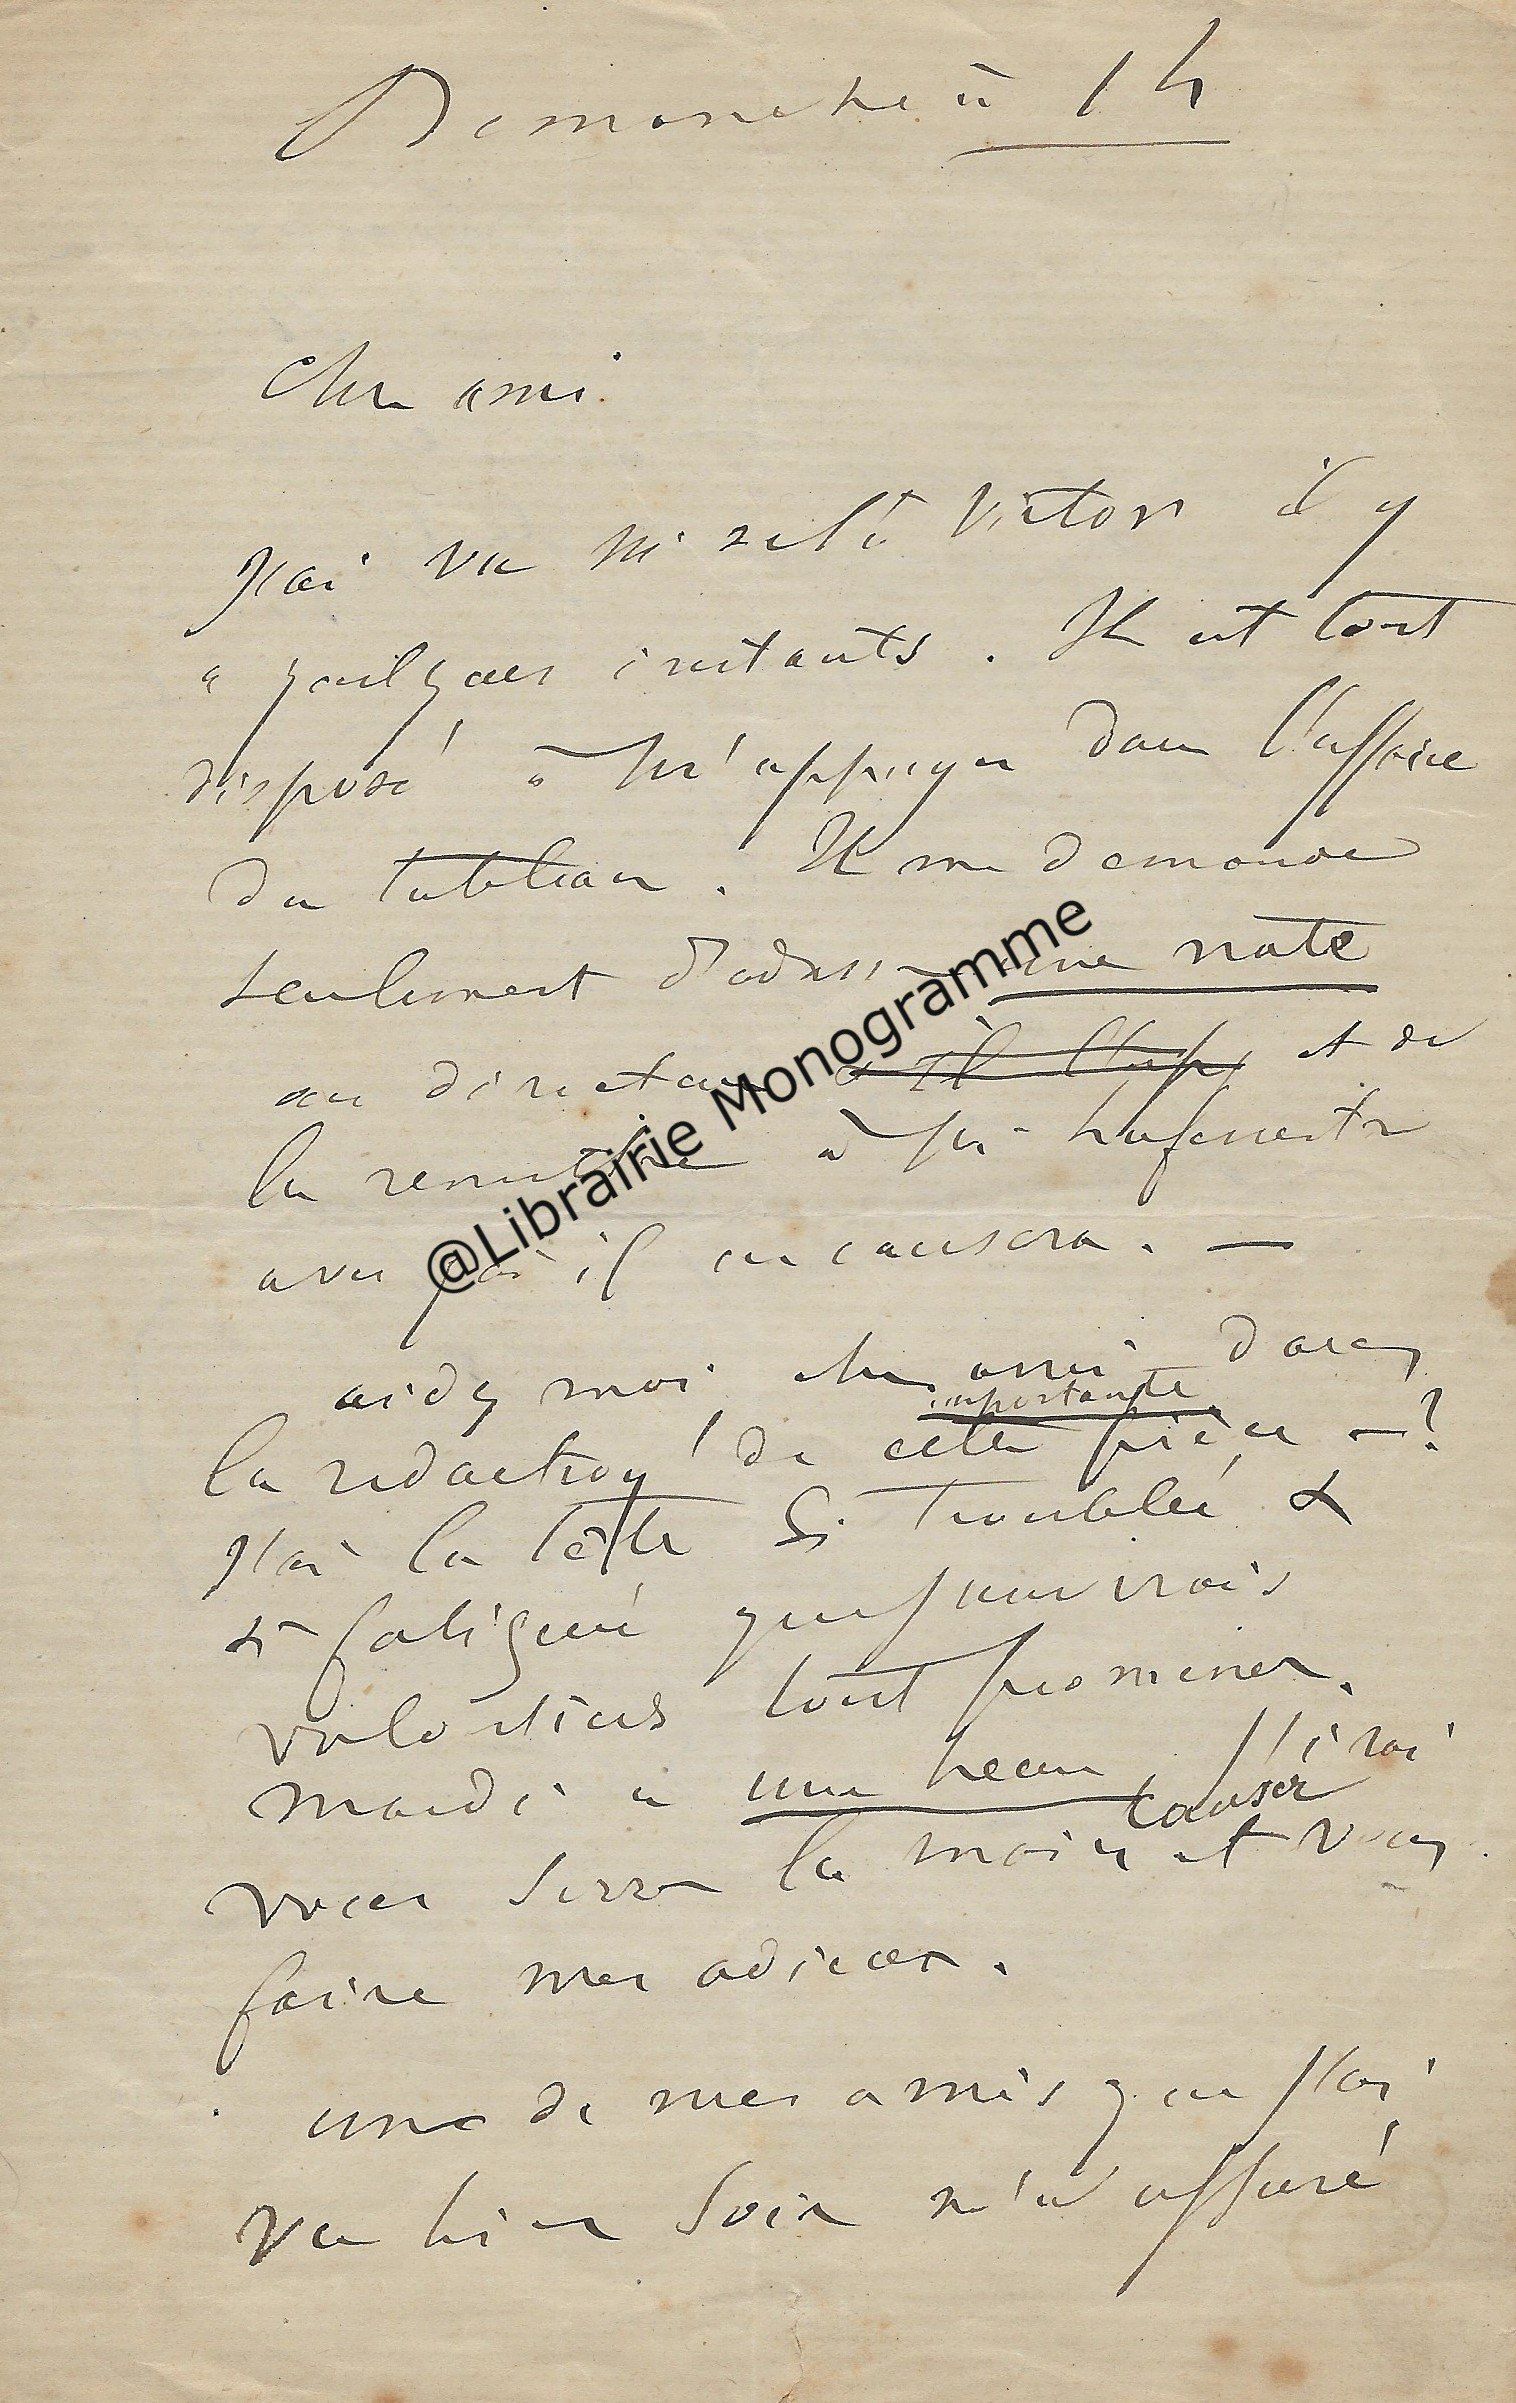 Dimanche à 1 h
Cher ami.
J'ai vu Mr Victor il y
a quelques instants. Il est tout
disposé à m'appuyer dans l'affaire
du tableau. Il me demande
seulement d'adresser une note
au directeur et de
la remettre à Mr Lafenestre
avec qui il en causera. —
aidez moi, cher ami, dans
la rédaction de cette importante pièce — ?
J'ai la tête si troublée &
si fatiguée que j'enverrais
volontiers tout promener.
Mardi à une heure, j'irai
vous serrer la main causer et vous
faire mes adieux.
un de mes amis que j'ai
vu hier soir m'a assuré
@Librairie Monogramme